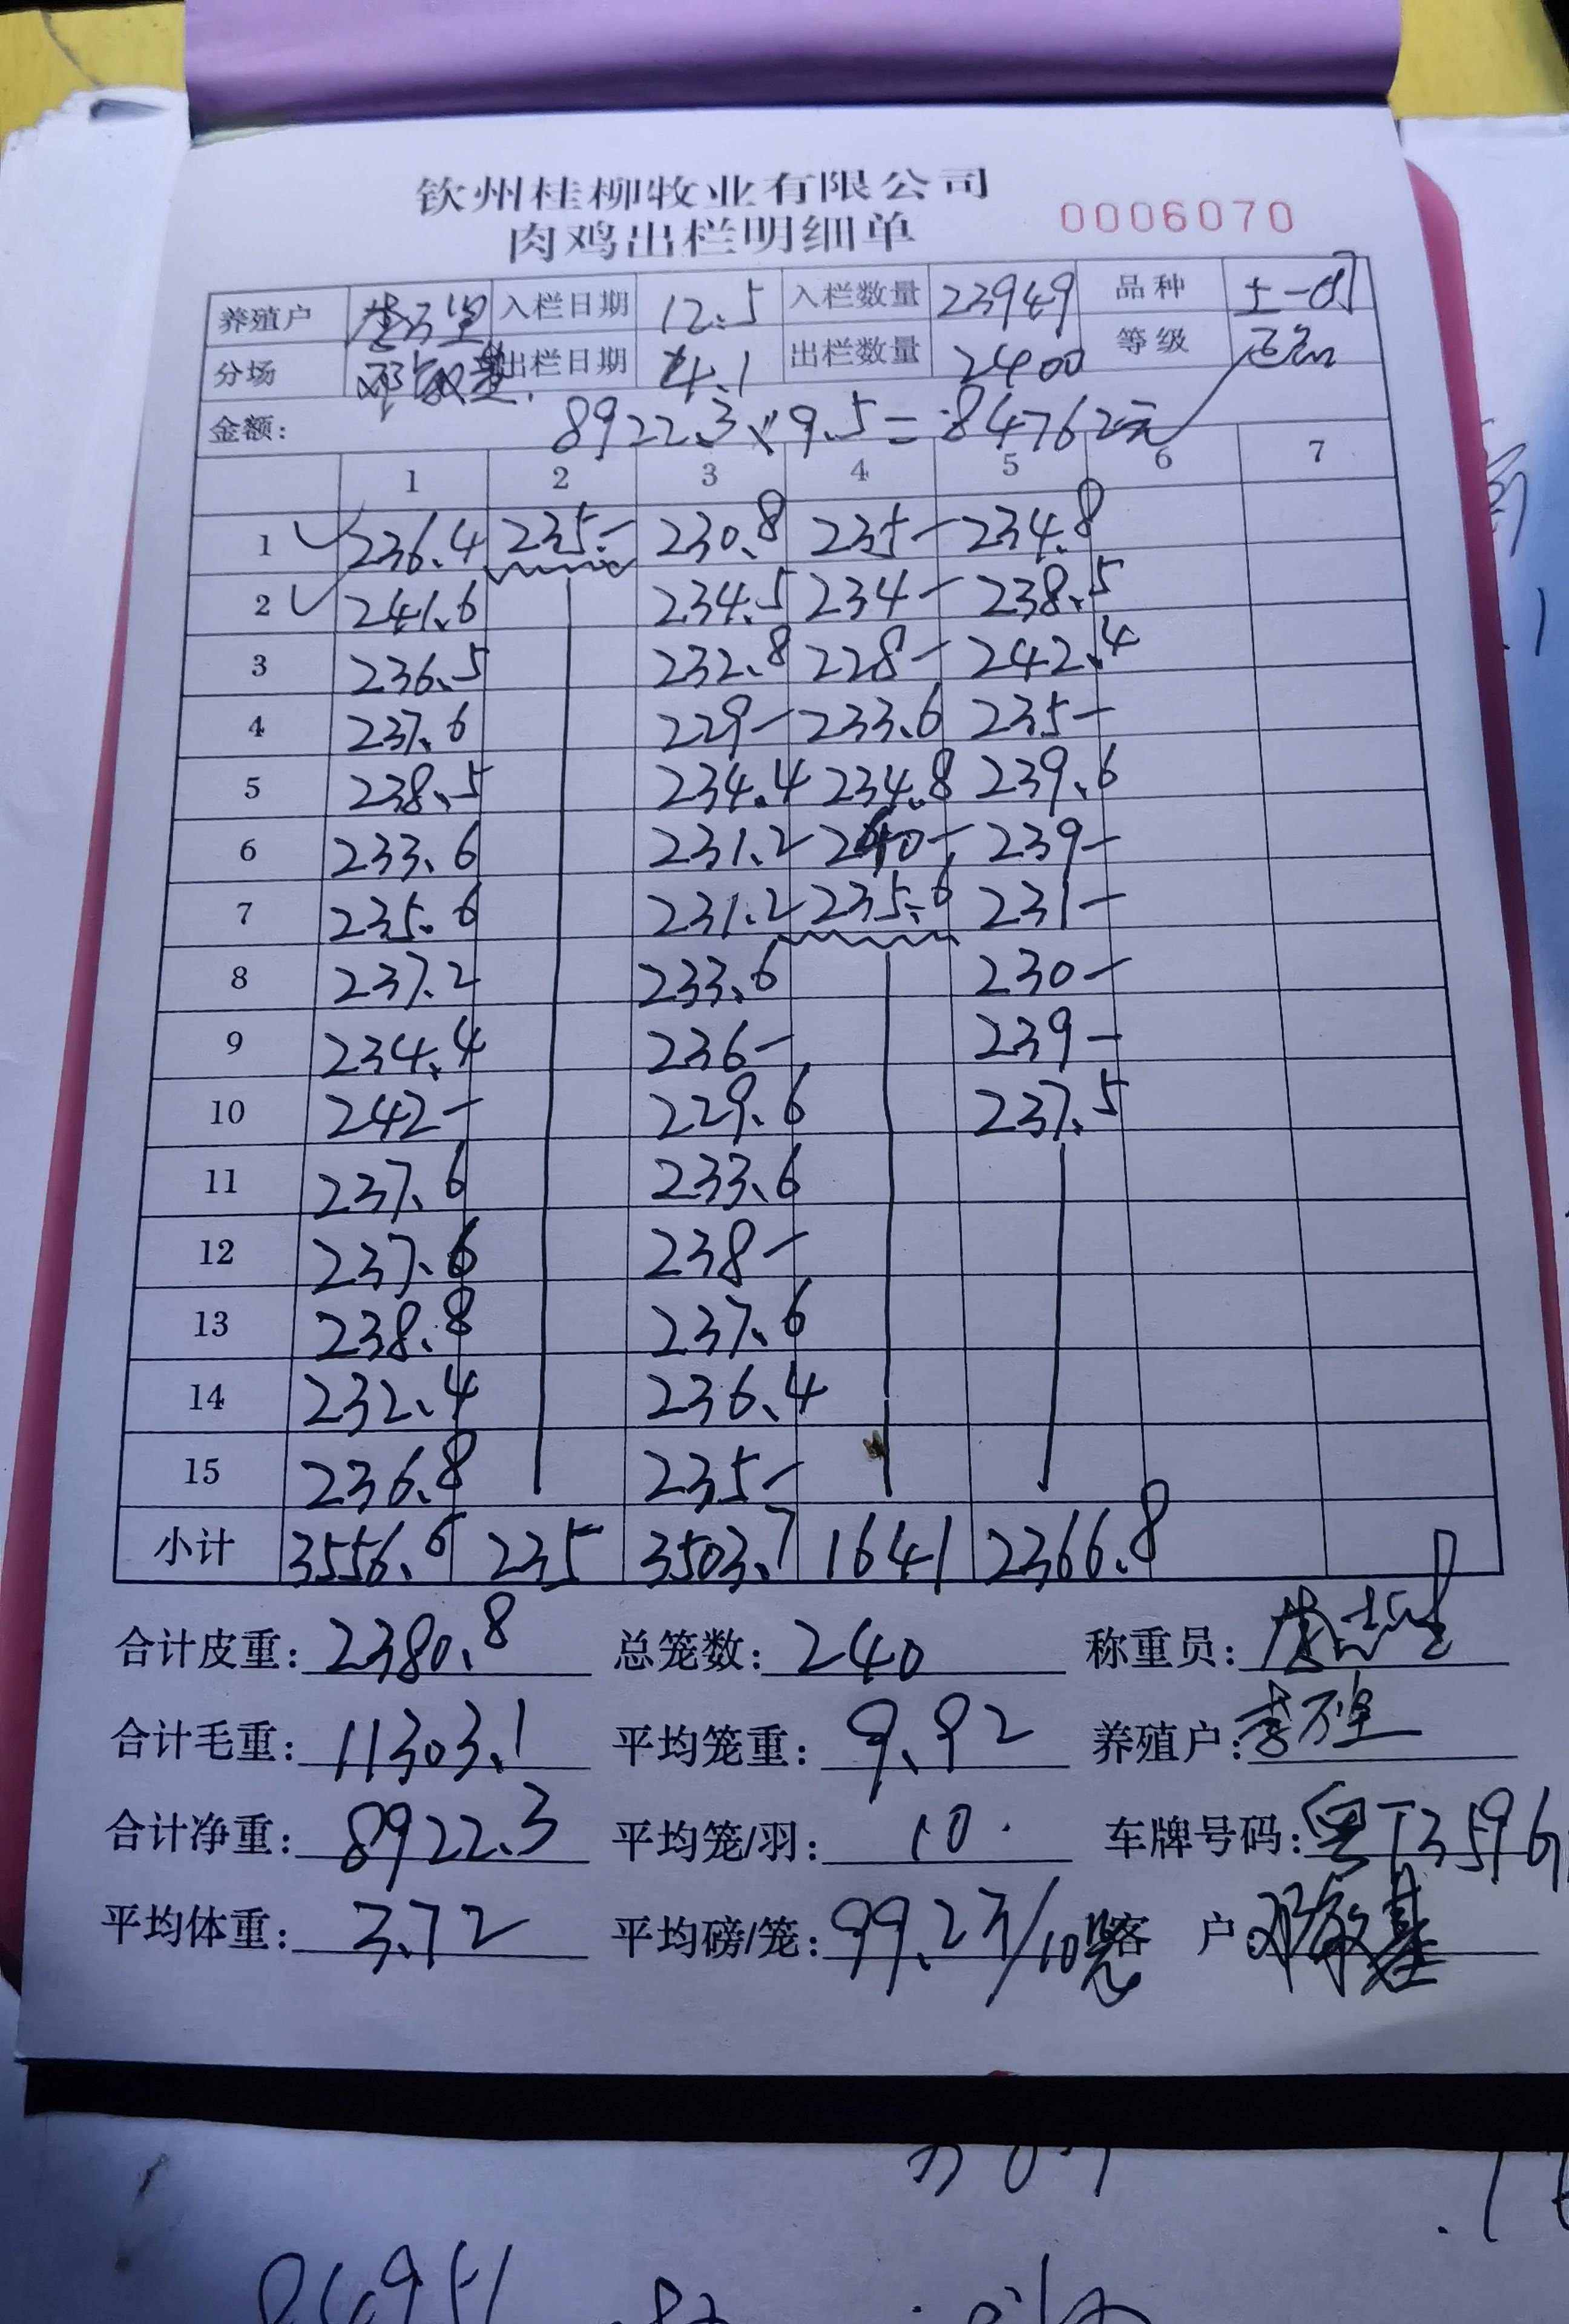 钦州桂柳牧业有限公司
肉鸡出栏明细单 0006070
养殖户 入栏日期 12.5 入栏数量 23949 品种 土一
分场 邓敏基. 出栏日期 4.1 出栏数量 2400 等级
金额: 8922.3×9.5=84762元
1 2 3 4 5 6 7
1 236.4 235.- 230.8 235- 234.8
2 241.6 234.5 234- 238.5
3 236.5 232.8 228- 242.4
4 237.6 229- 233.6 235-
5 238.5 234.4 234.8 239.6
6 233.6 231.2 240- 239-
7 235.6 231.2 235.6 231-
8 237.2 233.6 230-
9 234.4 236- 239-
10 242- 229.6 237.5
11 237.6 233.6
12 237.6 238-
13 238.8 237.6
14 232.4 236.4
15 236.8 235-
小计 3556.6 235 3503.7 1641 2366.8
合计皮重: 2380.8 总笼数: 240 称重员:
合计毛重: 11303.1 平均笼重: 9.92 养殖户:
合计净重: 8922.3 平均笼/羽: 10. 车牌号码: 粤T3596
平均体重: 3.72 平均磅/笼: 99.2斤/10笼 客 户: 邓敏基